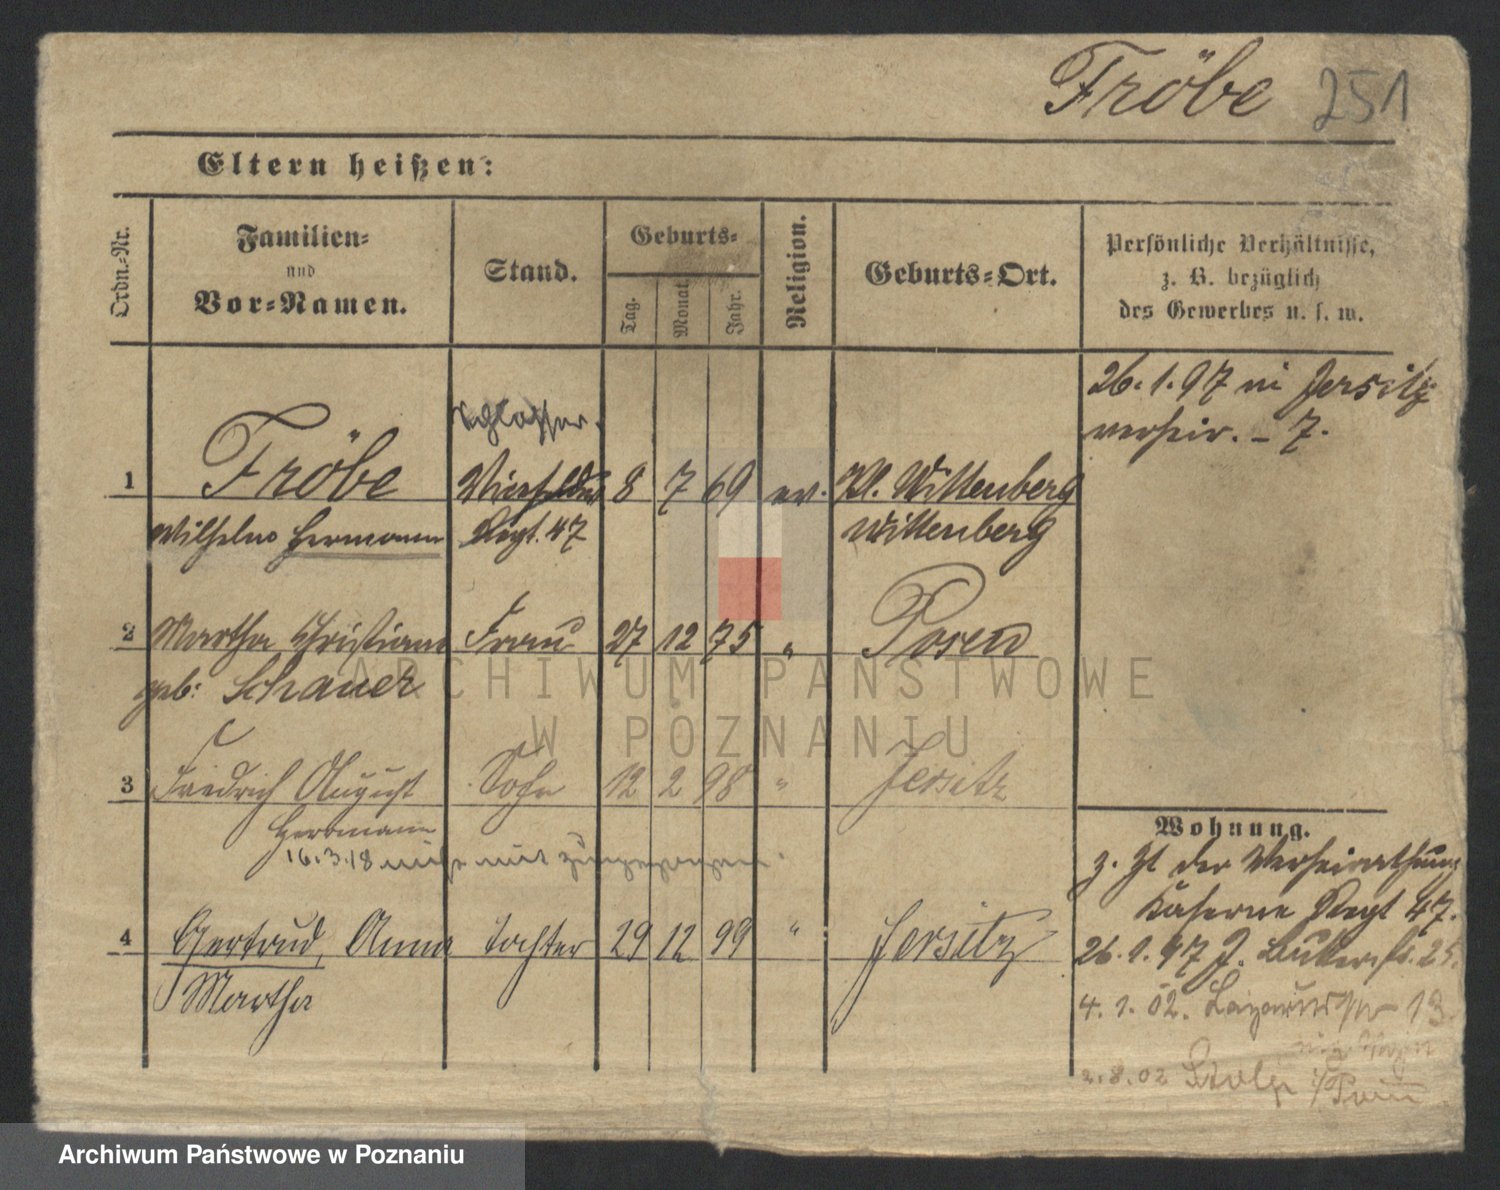 Fröbe 251
Eltern heißen:
Ordn.-Nr.
Familien-
und
Vor-Namen.
Stand.
Geburts-
Tag.
Monat.
Jahr.
Religion.
Geburts-Ort.
Persönliche Verhältnisse,
z. B. bezüglich
des Gewerbes u. s. w.
26. 1. 97 in Jersitz
verheir. - 7.
Schlosser.
1 Fröbe 8 7 69 ev. Kl. Wittenberg
Wilhelm Hermann Regt. 47 Wittenberg
2 Martha Christiane Frau 27 12 75 " Posen
geb: Schauer
ARCHIWUM PAŃSTWOWE
W POZNANIU
3 Friedrich August Sohn 12 2 98 " Jersitz
Herrmann
16.3.18 zugezogen.
Wohnung.
z. Zt der Verheirathung
Kaserne Regt 47.
4 Gertrud, Anna Tochter 29 12 99 " Jersitz
Martha
26. 1. 97 J. 25.
4. 1. 02. 13.
2. 8. 02 Stolp i/Pom
Archiwum Państwowe w Poznaniu